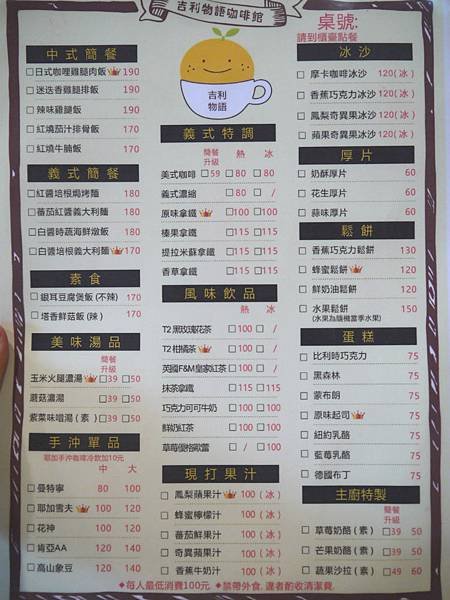 吉利物語咖啡館
桌號:
請到櫃臺點餐
吉利
物語
中式簡餐
□日式咖哩雞腿肉飯 190
□迷迭香雞腿排飯 190
□辣味雞腿飯 190
□紅燒茄汁排骨飯 190
□紅燒牛腩飯 190
義式簡餐
□紅醬培根焗烤麵 180
□蕃茄紅醬義大利麵 180
□白醬時蔬海鮮燉飯 180
□白醬培根義大利麵 180
素食
□銀耳豆腐煲飯(不辣) 170
□塔香鮮菇飯(辣) 170
美味湯品
簡餐
升級
玉米火腿濃湯 □39 □50
蘑菇濃湯 □39 □50
紫菜味噌湯(素) □39 □50
手沖單品
耶加手沖咖啡冷飲加10元
中 大
□曼特寧 80 100
□耶加雪夫 100 120
□花神 100 120
□肯亞AA 120 140
□高山象豆 120 140
義式特調
簡餐
升級 熱 冰
美式咖啡 □59 □80 □80
義式濃縮 □80 □ /
原味拿鐵 □100 □100
榛果拿鐵 □115 □115
提拉米蘇拿鐵 □115 □115
香草拿鐵 □115 □115
風味飲品
熱 冰
T2黑玫瑰花茶 □100 □ /
T2柑橘茶 □100 □ /
英國F&M皇家紅茶 □100 □ /
抹茶拿鐵 □115 □115
巧克力可可牛奶 □100 □100
鮮奶紅茶 □100 □100
草莓優格歐蕾 □ / □100
現打果汁
□鳳梨蘋果汁 100(冰)
□蜂蜜檸檬汁 100(冰)
□蕃茄鮮果汁 100(冰)
□奇異蘋果汁 100(冰)
□香蕉牛奶汁 100(冰)
冰沙
□摩卡咖啡冰沙 120(冰)
□香蕉巧克力冰沙 120(冰)
□鳳梨奇異果冰沙 120(冰)
□蘋果奇異果冰沙 120(冰)
厚片
□奶酥厚片 60
□花生厚片 60
□蒜味厚片 60
鬆餅
□香蕉巧克力鬆餅 130
□蜂蜜鬆餅 120
□鮮奶油鬆餅 120
□水果鬆餅 150
(水果為隨機當季水果)
蛋糕
□比利時巧克力 75
□黑森林 75
□蒙布朗 75
□原味起司 75
□紐約乳酪 75
□藍莓乳酪 75
□德國布丁 75
主廚特製
簡餐
升級
□草莓奶酪(素) □39 50
□芒果奶酪(素) □39 50
□蔬果沙拉(素) □49 60
◆每人最低消費100元. ◆禁帶外食, 違者酌收清潔費.